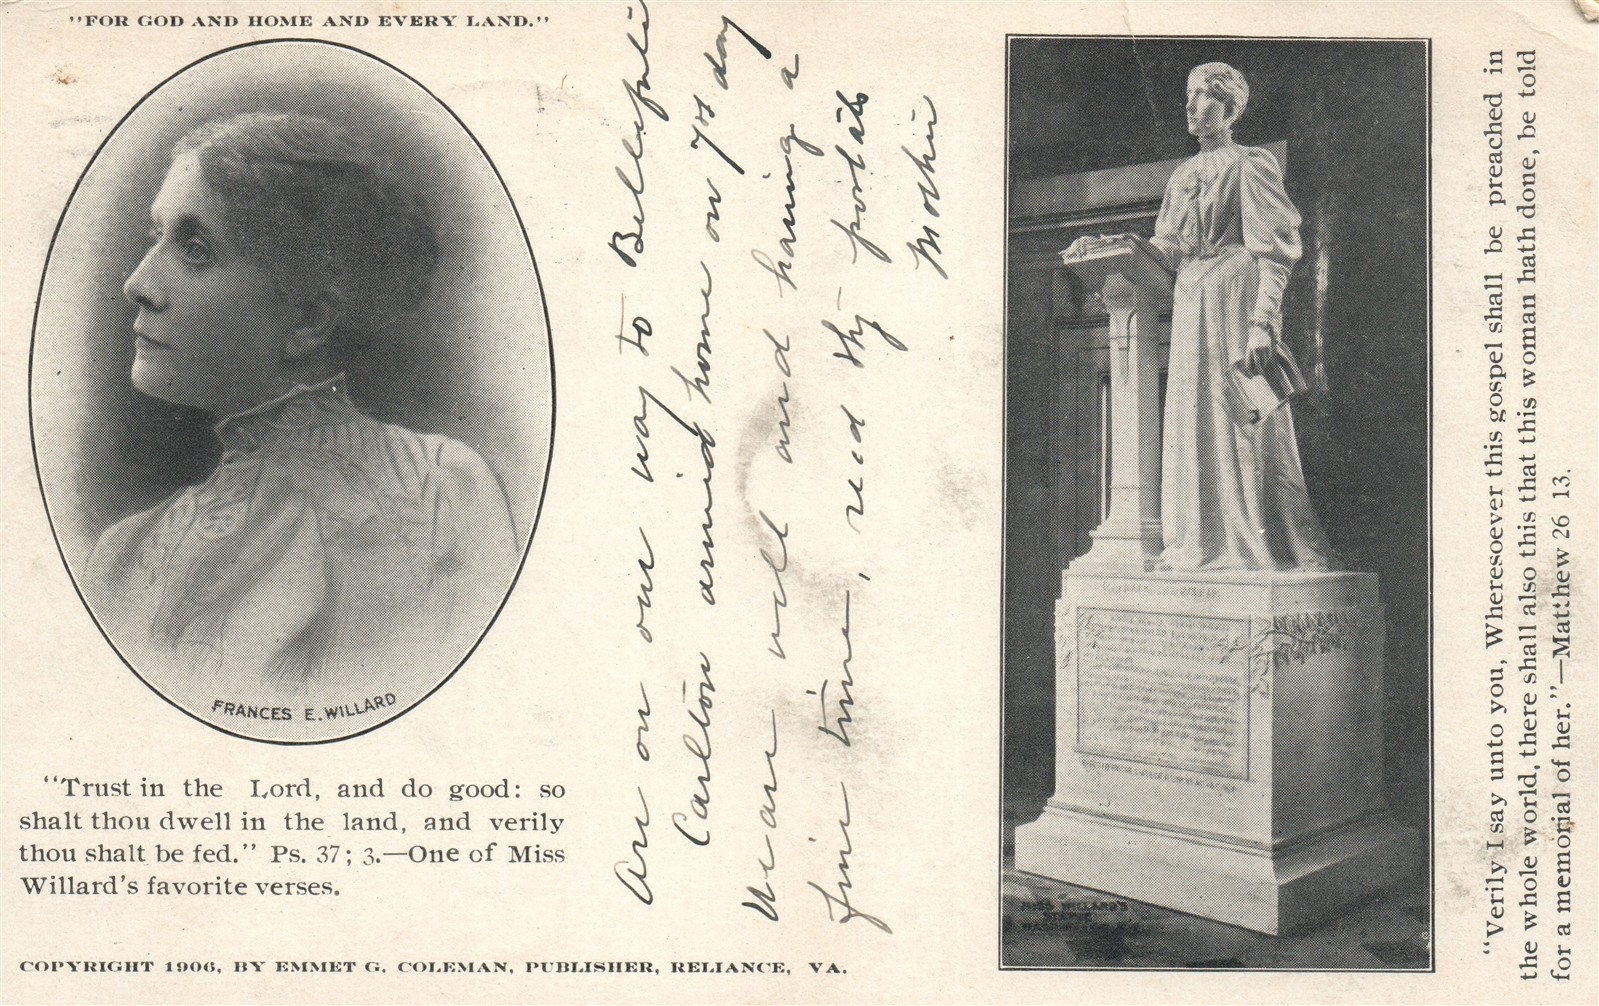 "FOR GOD AND HOME AND EVERY LAND."
FRANCES E. WILLARD
"Trust in the Lord, and do good: so
shalt thou dwell in the land, and verily
thou shalt be fed." Ps. 37; 3.—One of Miss
Willard's favorite verses.
COPYRIGHT 1906, BY EMMET G. COLEMAN, PUBLISHER, RELIANCE, VA.
Are on our way to
Carlton arrived home on 7th day
We are well and having a
fine time, recd thy postals
MISS WILLARD'S
STATUE
WASHINGTON
"Verily I say unto you, Wheresoever this gospel shall be preached in
the whole world, there shall also this that this woman hath done, be told
for a memorial of her."—Matthew 26 13.